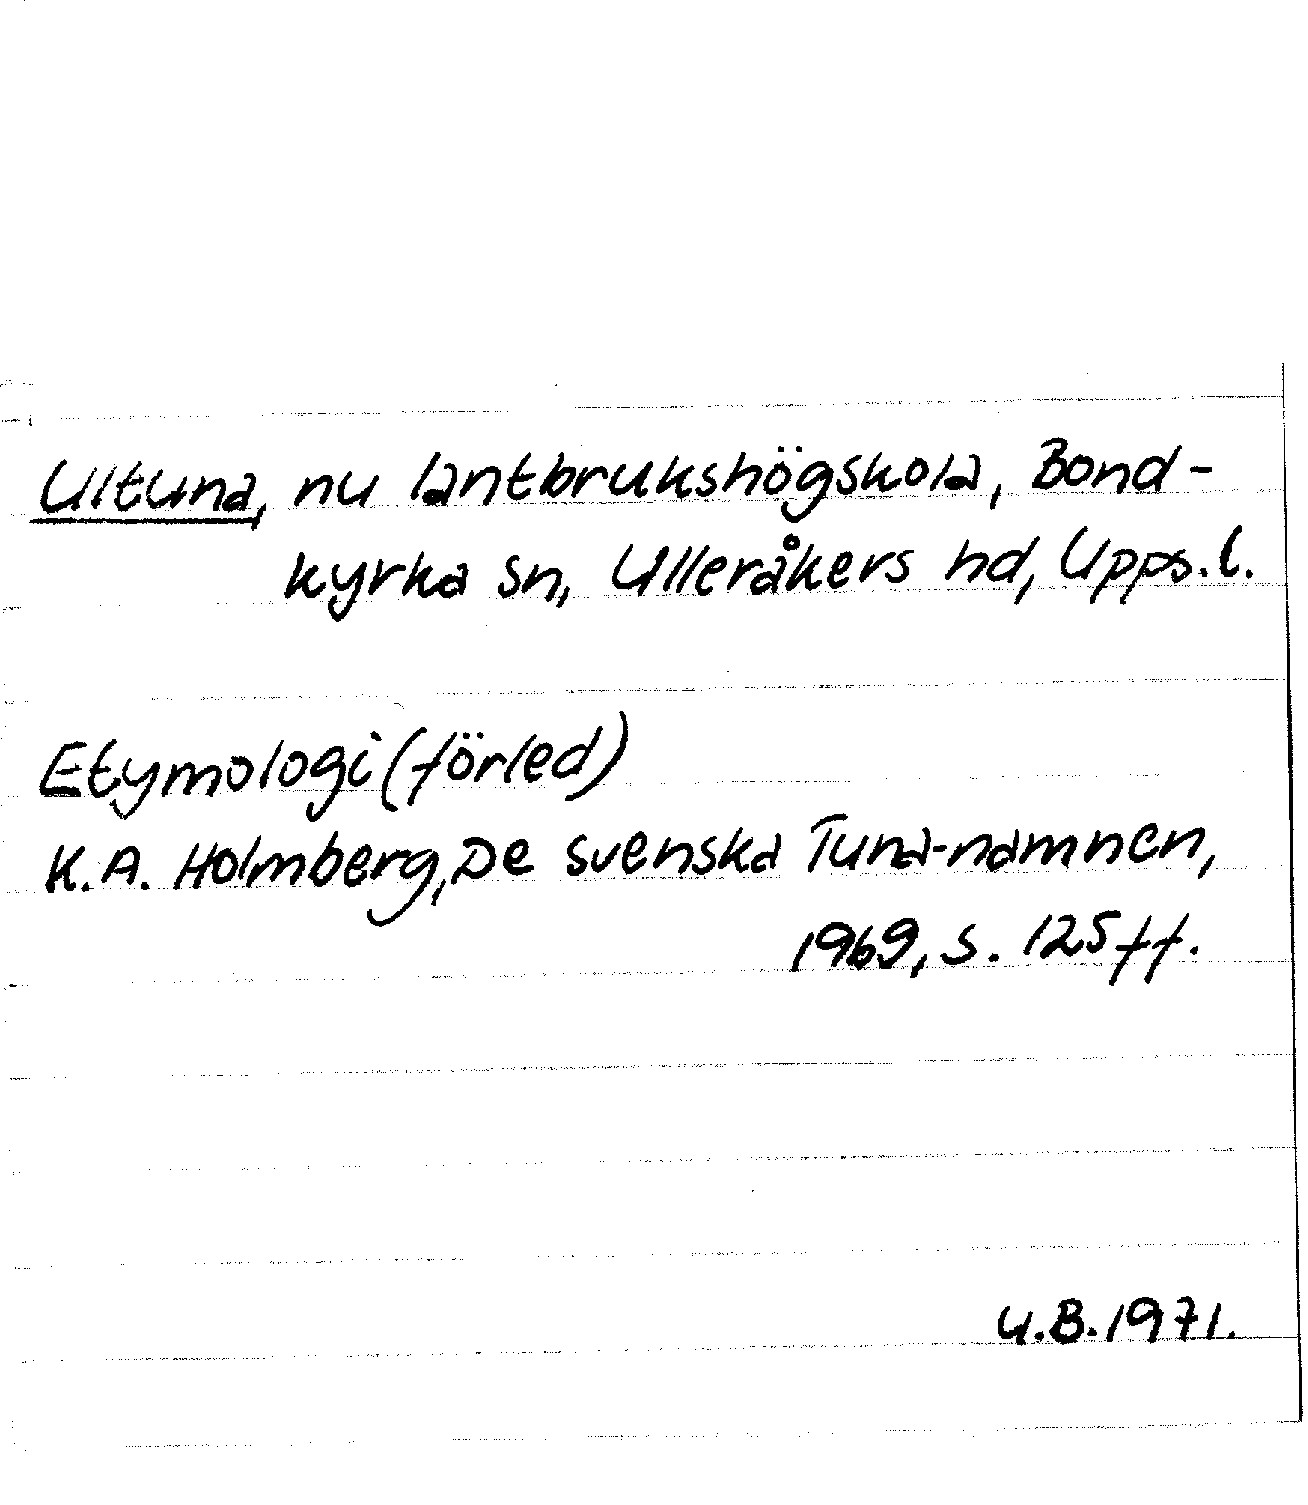 Ultuna, nu lantbrukshögskola, Bond-
kyrka sn, Ulleråkers hd, Upps.l.
Etymologi (förled)
K.A. Holmberg, De svenska Tuna-namnen,
1969, s. 125 ff.
U.B.1971.